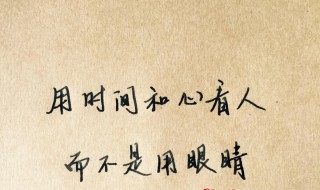 用时间和心看人
而不是用眼睛